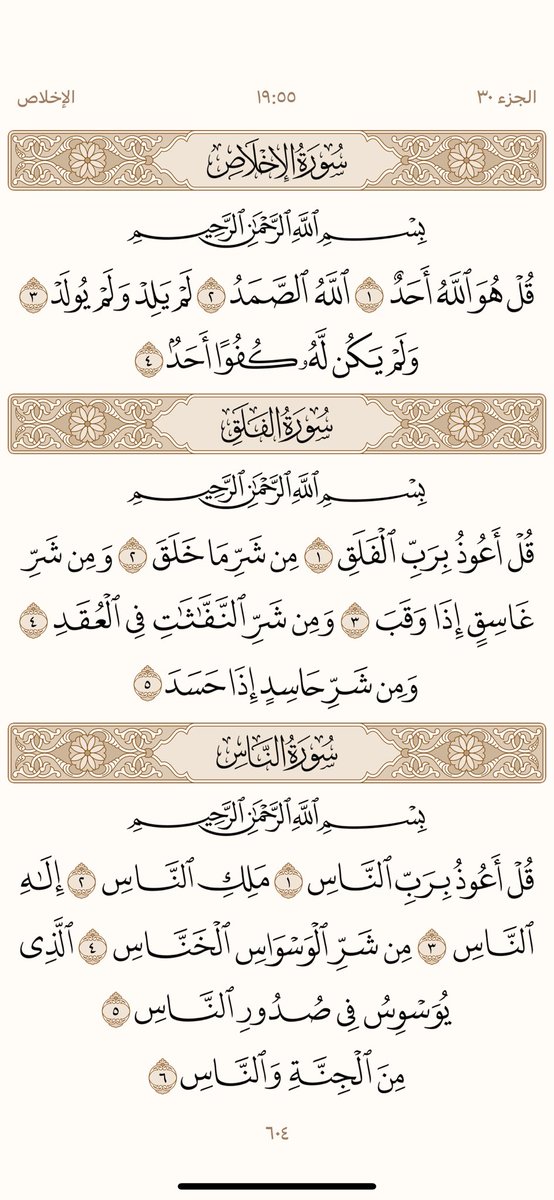 الجزء ٣٠ ١٩:٥٥ الإخلاص
سُورَةُ الإِخْلَاصِ
بِسْمِ ٱللَّهِ ٱلرَّحْمَٰنِ ٱلرَّحِيمِ
قُلْ هُوَ ٱللَّهُ أَحَدٌ ١ ٱللَّهُ ٱلصَّمَدُ ٢ لَمْ يَلِدْ وَلَمْ يُولَدْ ٣
وَلَمْ يَكُن لَّهُۥ كُفُوًا أَحَدٌۢ ٤
سُورَةُ الفَلَقِ
بِسْمِ ٱللَّهِ ٱلرَّحْمَٰنِ ٱلرَّحِيمِ
قُلْ أَعُوذُ بِرَبِّ ٱلْفَلَقِ ١ مِن شَرِّ مَا خَلَقَ ٢ وَمِن شَرِّ
غَاسِقٍ إِذَا وَقَبَ ٣ وَمِن شَرِّ ٱلنَّفَّٰثَٰتِ فِى ٱلْعُقَدِ ٤
وَمِن شَرِّ حَاسِدٍ إِذَا حَسَدَ ٥
سُورَةُ النَّاسِ
بِسْمِ ٱللَّهِ ٱلرَّحْمَٰنِ ٱلرَّحِيمِ
قُلْ أَعُوذُ بِرَبِّ ٱلنَّاسِ ١ مَلِكِ ٱلنَّاسِ ٢ إِلَٰهِ
ٱلنَّاسِ ٣ مِن شَرِّ ٱلْوَسْوَاسِ ٱلْخَنَّاسِ ٤ ٱلَّذِى
يُوَسْوِسُ فِى صُدُورِ ٱلنَّاسِ ٥
مِنَ ٱلْجِنَّةِ وَٱلنَّاسِ ٦
٦٠٤